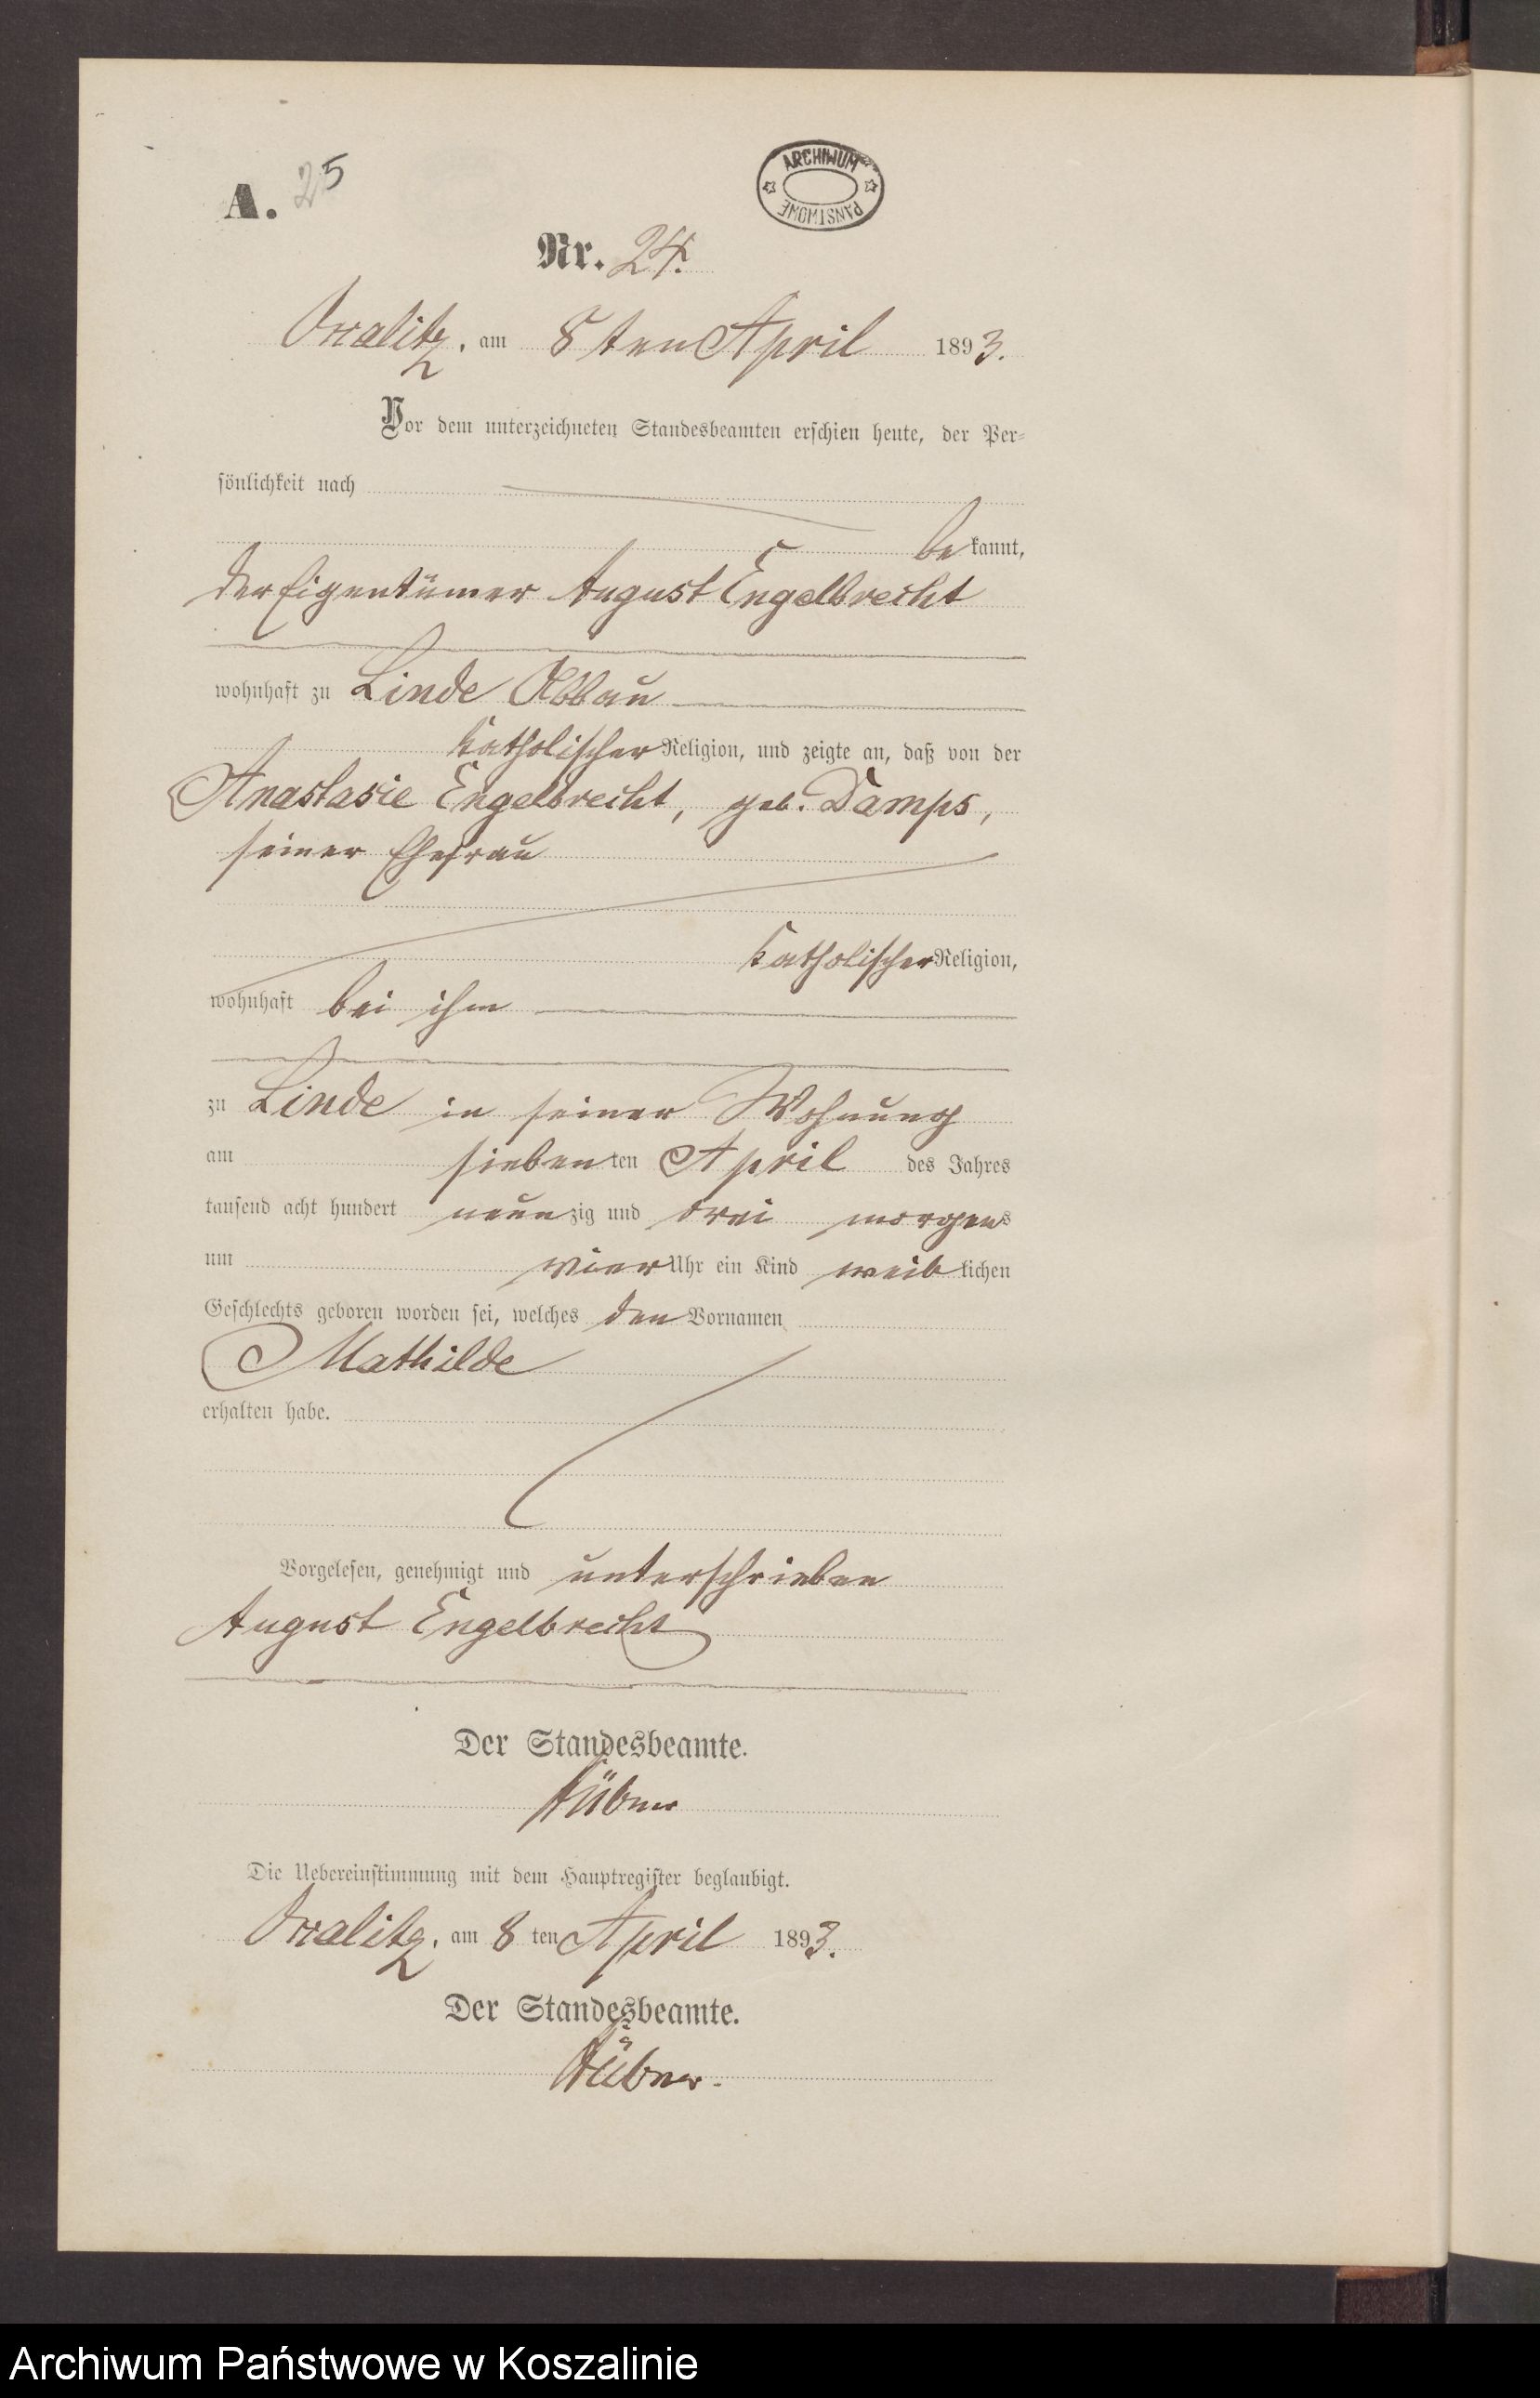 A. 25
ARCHIWUM PAŃSTWOWE
Nr. 24.
am 8 ten April 1893.
Vor dem unterzeichneten Standesbeamten erschien heute, der Per-
sönlichkeit nach
be kannt,
der Eigentümer August Engelbrecht
wohnhaft zu Linde Abbau
katholischer Religion, und zeigte an, daß von der
Anastasie Engelbrecht, geb. Damps,
seiner Ehefrau
katholischer Religion,
wohnhaft bei ihm
zu Linde in seiner Wohnung
am siebenten April des Jahres
tausend acht hundert neunzig und drei morgens
um vier Uhr ein Kind weiblichen
Geschlechts geboren worden sei, welches den Vornamen
Mathilde
erhalten habe.
Vorgelesen, genehmigt und unterschrieben
August Engelbrecht
Der Standesbeamte.
Hübner
Die Uebereinstimmung mit dem Hauptregister beglaubigt.
am 8 ten April 1893.
Der Standesbeamte.
Hübner.
Archiwum Państwowe w Koszalinie